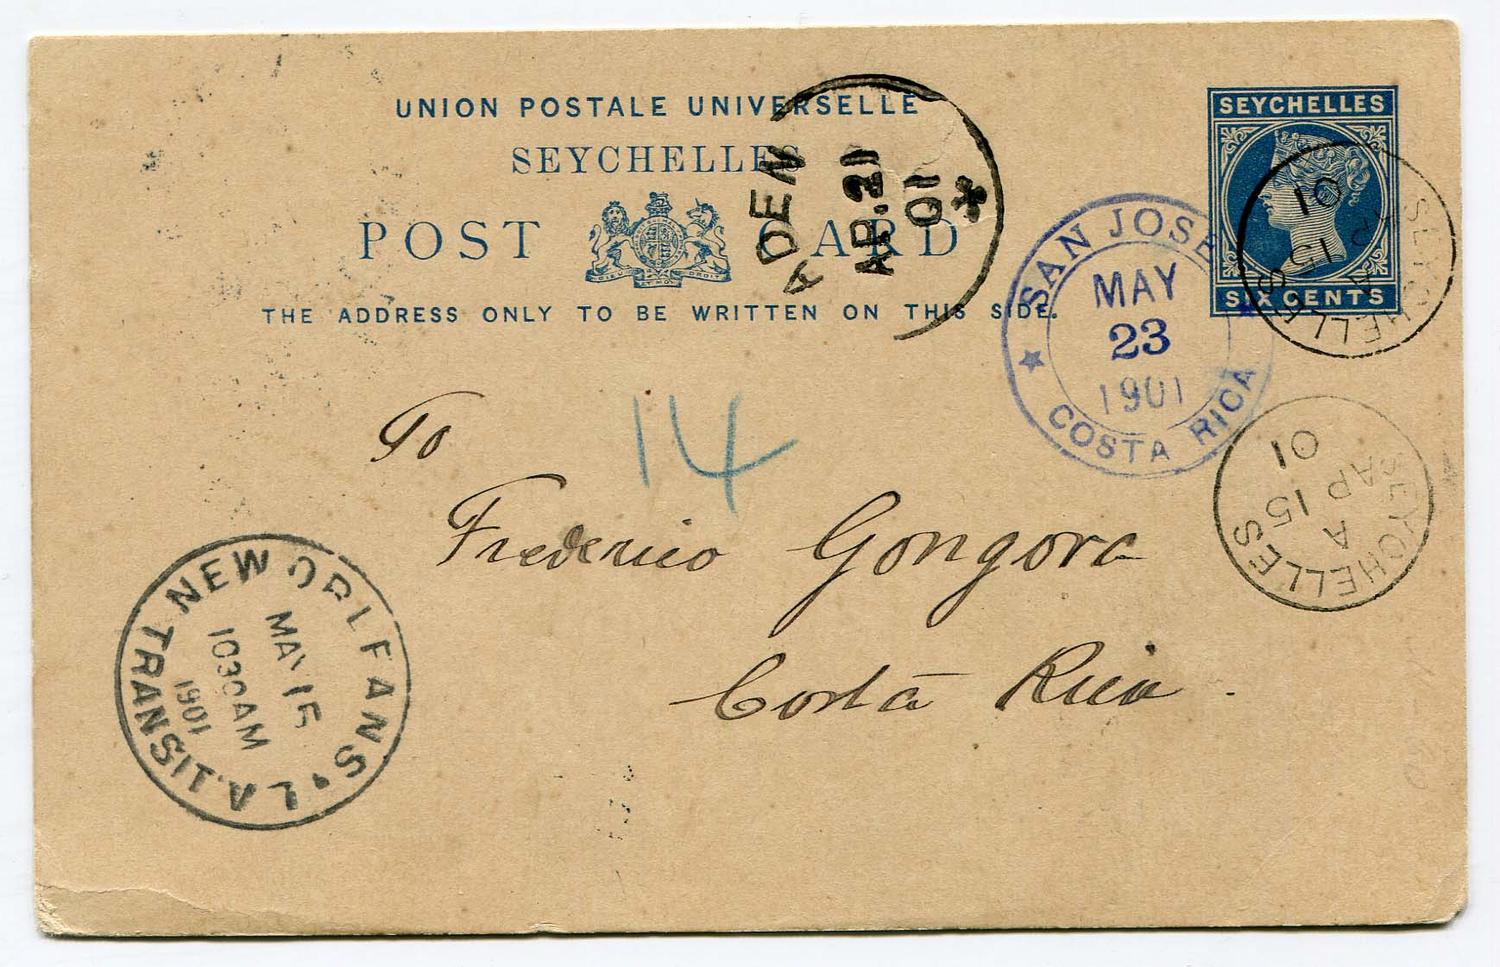 UNION POSTALE UNIVERSELLE
SEYCHELLES
POST CARD
THE ADDRESS ONLY TO BE WRITTEN ON THIS SIDE.
SEYCHELLES
SIX CENTS
ADEN
AP.21
01
SAN JOSE
MAY
23
1901
COSTA RICA
SEYCHELLES
A
AP 15
01
SEYCHELLES
A
AP 15
01
14
To
Frederico Gongora
Costa Rica.
NEW ORLEANS. LA.
MAY 15
1030AM
1901
TRANSIT.